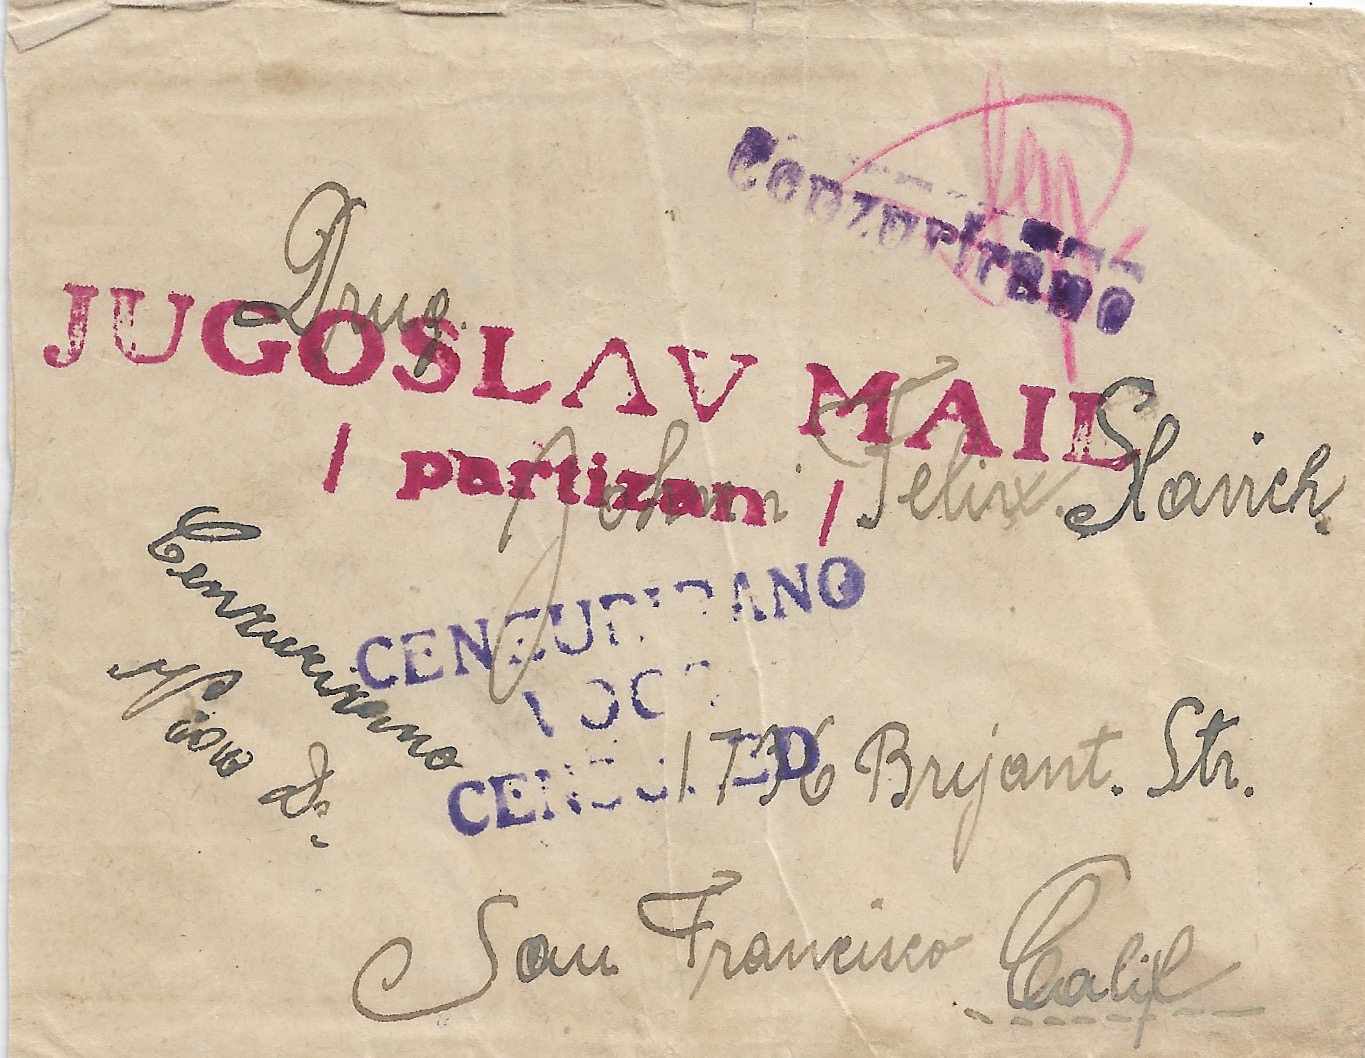 Cenzurirano
Drug.
JUGOSLAV MAIL
/ partizan /
John Felix. Slavich.
Cenzurirano
CENZURIRANO
CENSORED
1736 Bryant. Str.
San Francisco
Calif